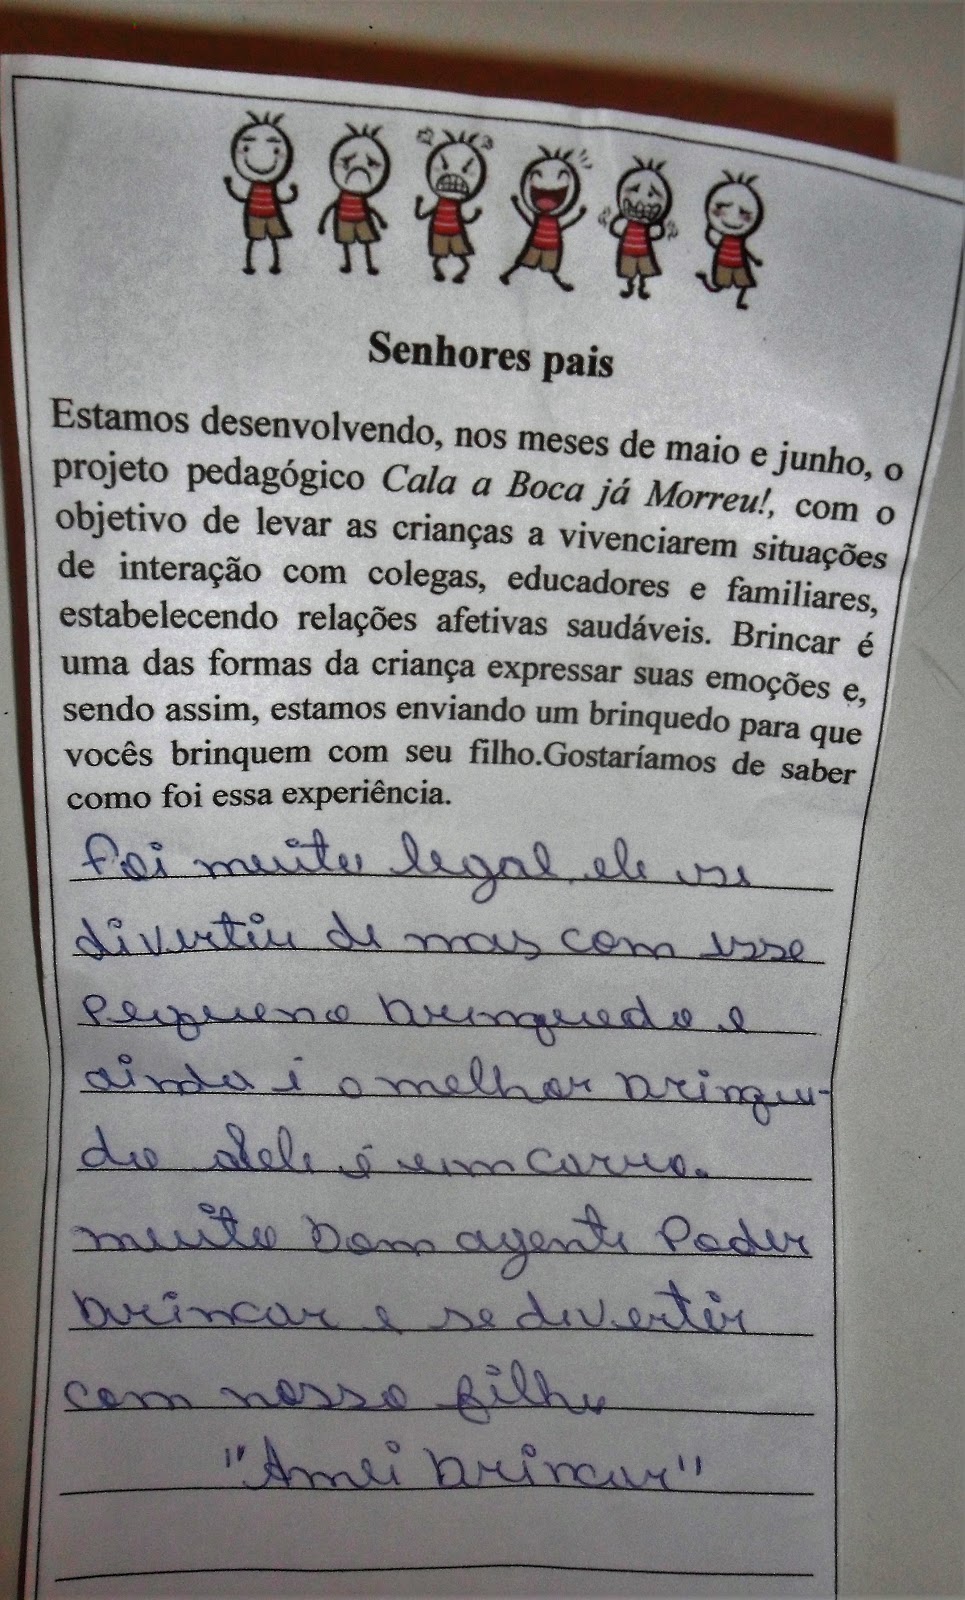 Senhores pais
Estamos desenvolvendo, nos meses de maio e junho, o
projeto pedagógico Cala a Boca já Morreu!, com o
objetivo de levar as crianças a vivenciarem situações
de interação com colegas, educadores e familiares,
estabelecendo relações afetivas saudáveis. Brincar é
uma das formas da criança expressar suas emoções e,
sendo assim, estamos enviando um brinquedo para que
vocês brinquem com seu filho.Gostaríamos de saber
como foi essa experiência.
Foi muito legal, ele se
divertiu de mas com esse
pequeno brinquedo e
ainda é o melhor brinque-
do dele é um carro.
muito bom agente Poder
brincar e se divertir
com nosso filho
"Amei brincar"